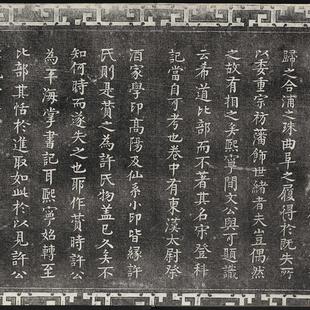 歸之合浦之珠曲阜之履得於既失所
以委重宗枋藩飾世緒者夫豈偶然
之故有相之矣熙寧間文公與可題識
云希道比部而不著其名宋登科
記當自可考也卷中有東漢太尉祭
酒家學印高陽及仙系小印皆緣許
氏則是贊之為許氏物蓋已久矣不
知何時而遂失之也耶作贊時許公
為平海掌書記耳熙寧始轉至
比部其恬於進取如此於以見許公